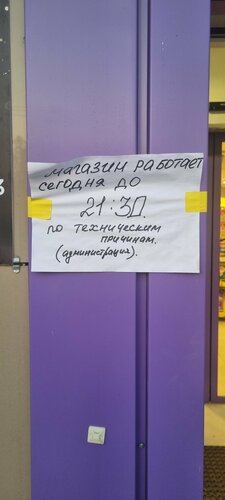 магазин работает
сегодня до
21:30.
по техническим
причинам.
(администрация).